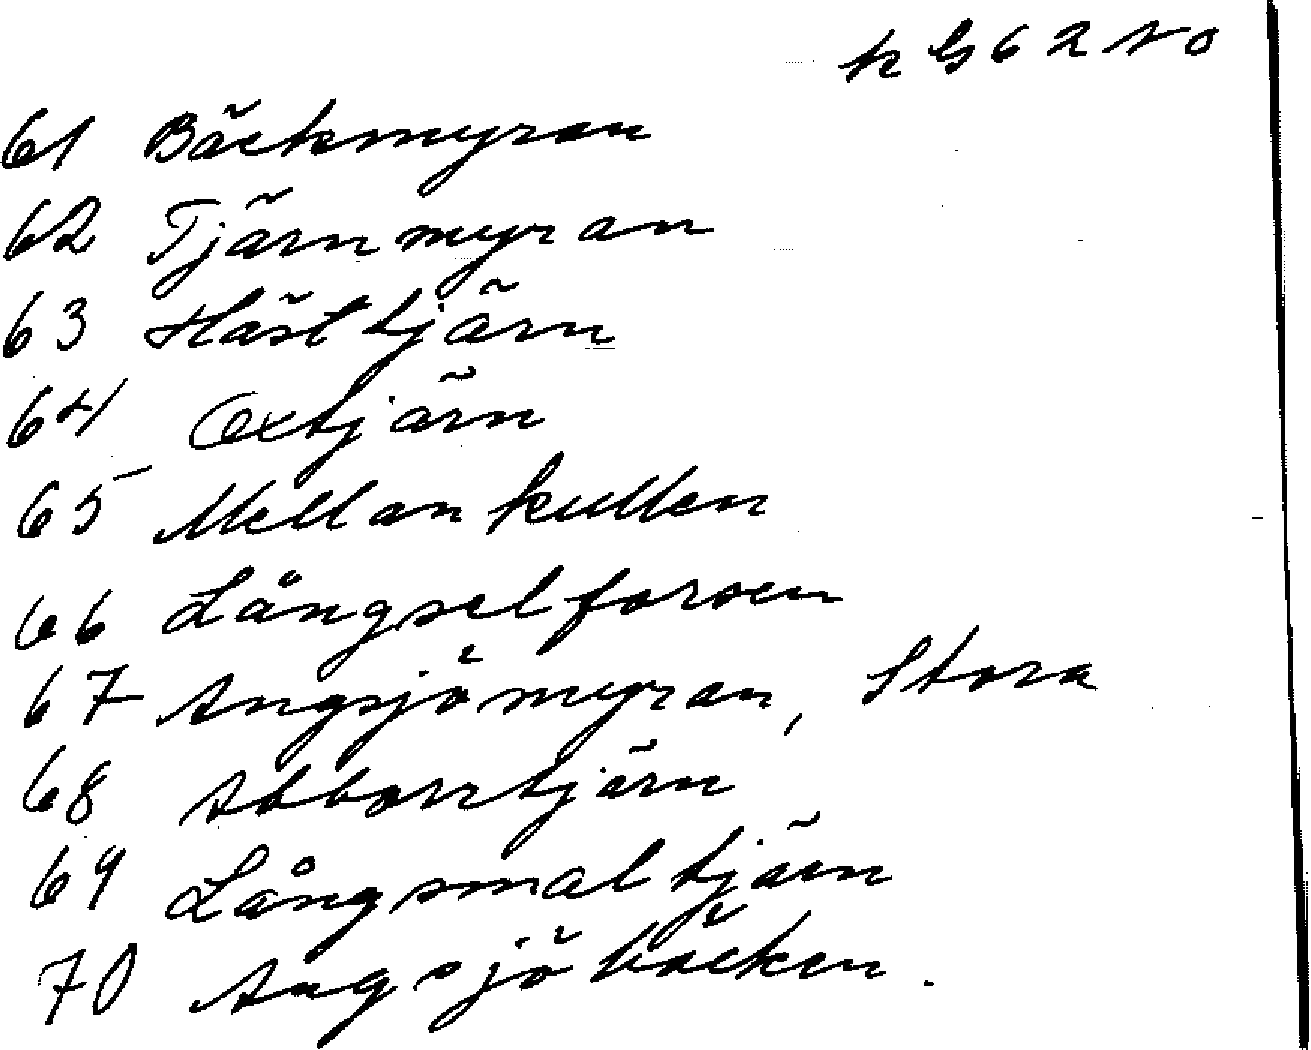 61 Bäckmyran
62 Tjärnmyran
63 Hästtjärn
64 Oxtjärn
65 Mellankullen
66 Långselforsen
67 Angsjömyran, Stora
68 Abborrtjärn
69 Långsmaltjärn
70 Angsjöbäcken.